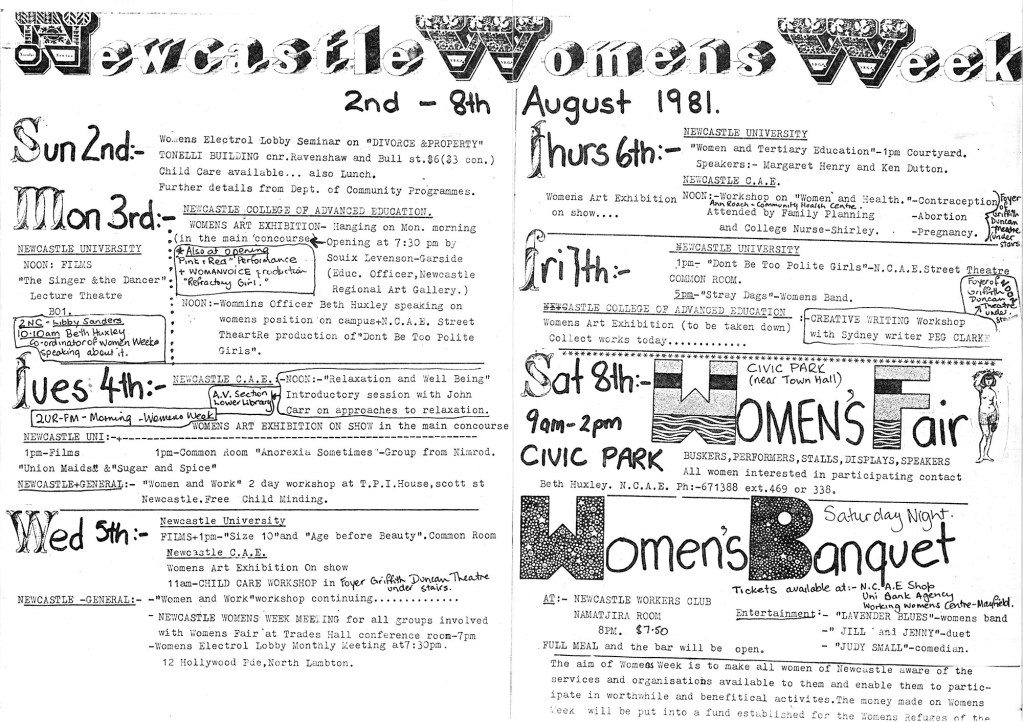 Newcastle Womens Week
2nd - 8th August 1981.
Sun 2nd:-
Womens Electrol Lobby Seminar on "DIVORCE &PROPERTY"
TONELLI BUILDING cnr.Ravenshaw and Bull st.$6($3 con.)
Child Care available... also Lunch.
Further details from Dept. of Community Programmes.
Mon 3rd:-
NEWCASTLE COLLEGE OF ADVANCED EDUCATION.
WOMENS ART EXHIBITION- Hanging on Mon. morning
(in the main concourse
Opening at 7:30 pm by
Souix Levenson-Garside
(Educ. Officer,Newcastle
Regional Art Gallery.)
* Also at opening
"Pink & Red" Performance
+ WOMANVOICE production
"Refractory Girl."
NOON:-Wommins Officer Beth Huxley speaking on
womens position on campus+N.C.A.E. Street
TheartRe production of"Dont Be Too Polite
Girls".
NEWCASTLE UNIVERSITY
NOON: FILMS
"The Singer &the Dancer"
Lecture Theatre
BO1.
2NC - Libby Sanders
10-10am Beth Huxley
Co-ordinator of Women Weeks
speaking about it.
Tues 4th:-
NEWCASTLE C.A.E.:-NOON:-"Relaxation and Well Being"
Introductory session with John
Carr on approaches to relaxation.
A.V. Section
Lower Library
2UR-FM - Morning - Womens Week
WOMENS ART EXHIBITION ON SHOW in the main concourse
NEWCASTLE UNI:-
1pm-Films
1pm-Common Room "Anorexia Sometimes"-Group from Nimrod.
"Union Maids" &"Sugar and Spice"
NEWCASTLE+GENERAL:- "Women and Work" 2 day workshop at T.P.I.House,scott st
Newcastle.Free Child Minding.
Wed 5th:-
Newcastle University
FILMS+1pm-"Size 10"and "Age before Beauty".Common Room
Newcastle C.A.E.
Womens Art Exhibition On show
11am-CHILD CARE WORKSHOP in Foyer Griffith Duncan Theatre
under stairs.
NEWCASTLE -GENERAL:- -"Women and Work"workshop continuing..............
- NEWCASTLE WOMENS WEEK MEETING for all groups involved
with Womens Fair at Trades Hall conference room-7pm
-Womens Electrol Lobby Monthly Meeting at7:30pm.
12 Hollywood Pde,North Lambton.
Thurs 6th:-
NEWCASTLE UNIVERSITY
"Women and Tertiary Education"-1pm Courtyard.
Speakers:- Margaret Henry and Ken Dutton.
NEWCASTLE C.A.E.
Womens Art Exhibition
on show....
NOON:-Workshop on "Women and Health."-Contraception
Ann Roach - Community Health Centre.
Attended by Family Planning -Abortion
and College Nurse-Shirley. -Pregnancy.
Foyer
of
Griffith
Duncan
Theatre
under
stairs.
Fri 7th:-
NEWCASTLE UNIVERSITY
1pm- "Dont Be Too Polite Girls"-N.C.A.E.Street Theatre
COMMON ROOM.
5pm-"Stray Dags"-Womens Band.
NEWCASTLE COLLEGE OF ADVANCED EDUCATION
Womens Art Exhibition (to be taken down)
Collect works today.............
:-CREATIVE WRITING Workshop
with Sydney writer PEG CLARKE
Foyer of
Griffith
Duncan
Theatre
under
Sat 8th:-
9am-2pm
CIVIC PARK
CIVIC PARK
(near Town Hall)
WOMEN'S Fair
BUSKERS,PERFORMERS,STALLS,DISPLAYS,SPEAKERS
All women interested in participating contact
Beth Huxley. N.C.A.E. Ph:-671388 ext.469 or 338.
Saturday Night.
Women's Banquet
Tickets available at:- N.C.A.E Shop
Uni Bank Agency
Working Womens Centre-Mayfield.
AT:- NEWCASTLE WORKERS CLUB
NAMATJIRA ROOM
8PM. $7.50
FULL MEAL and the bar will be open.
Entertainment:- -"LAVENDER BLUES"-womens band
-" JILL and JENNY"-duet
- "JUDY SMALL"-comedian.
The aim of Womens Week is to make all women of Newcastle aware of the
services and organisations available to them and enable them to partic-
ipate in worthwhile and benefitical activites.The money made on Womens
Week will be put into a fund established for the Womens Refuges of the